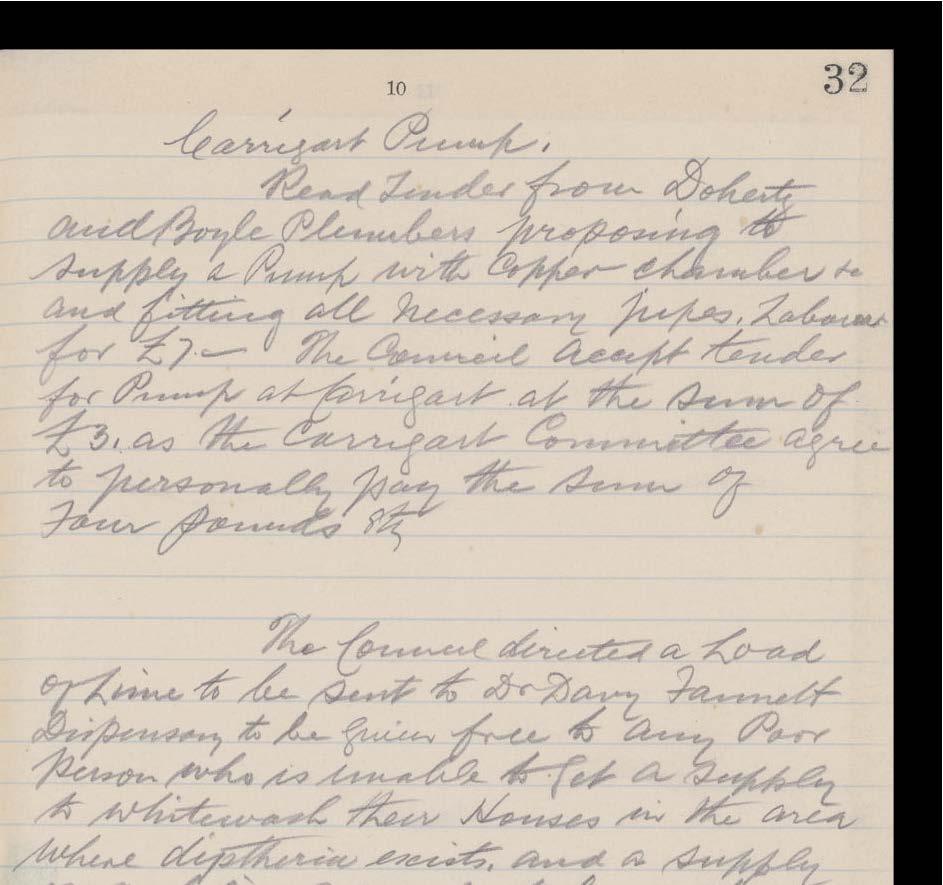 10
32
Carrigart Pump.
Read Tender from Doherty
and Boyle Plumbers proposing to
supply a Pump with Copper chamber &c
and fitting all necessary pipes, Labour
for £7.— The Council accept tender
for Pump at Carrigart at the sum of
£3. as the Carrigart Committee agree
to personally pay the sum of
Four pounds
The Council directed a Load
of Lime to be sent to Dr Davy
Dispensary to be given free to any Poor
Person who is unable to get a supply
to whitewash their Houses in the area
where diptheria exists. and a supply